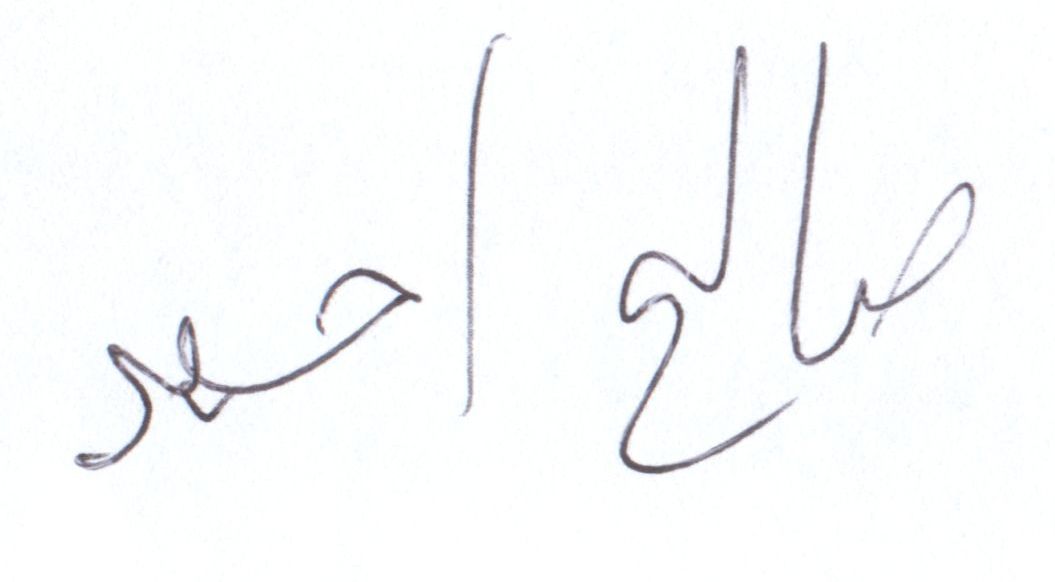 صالح احمد